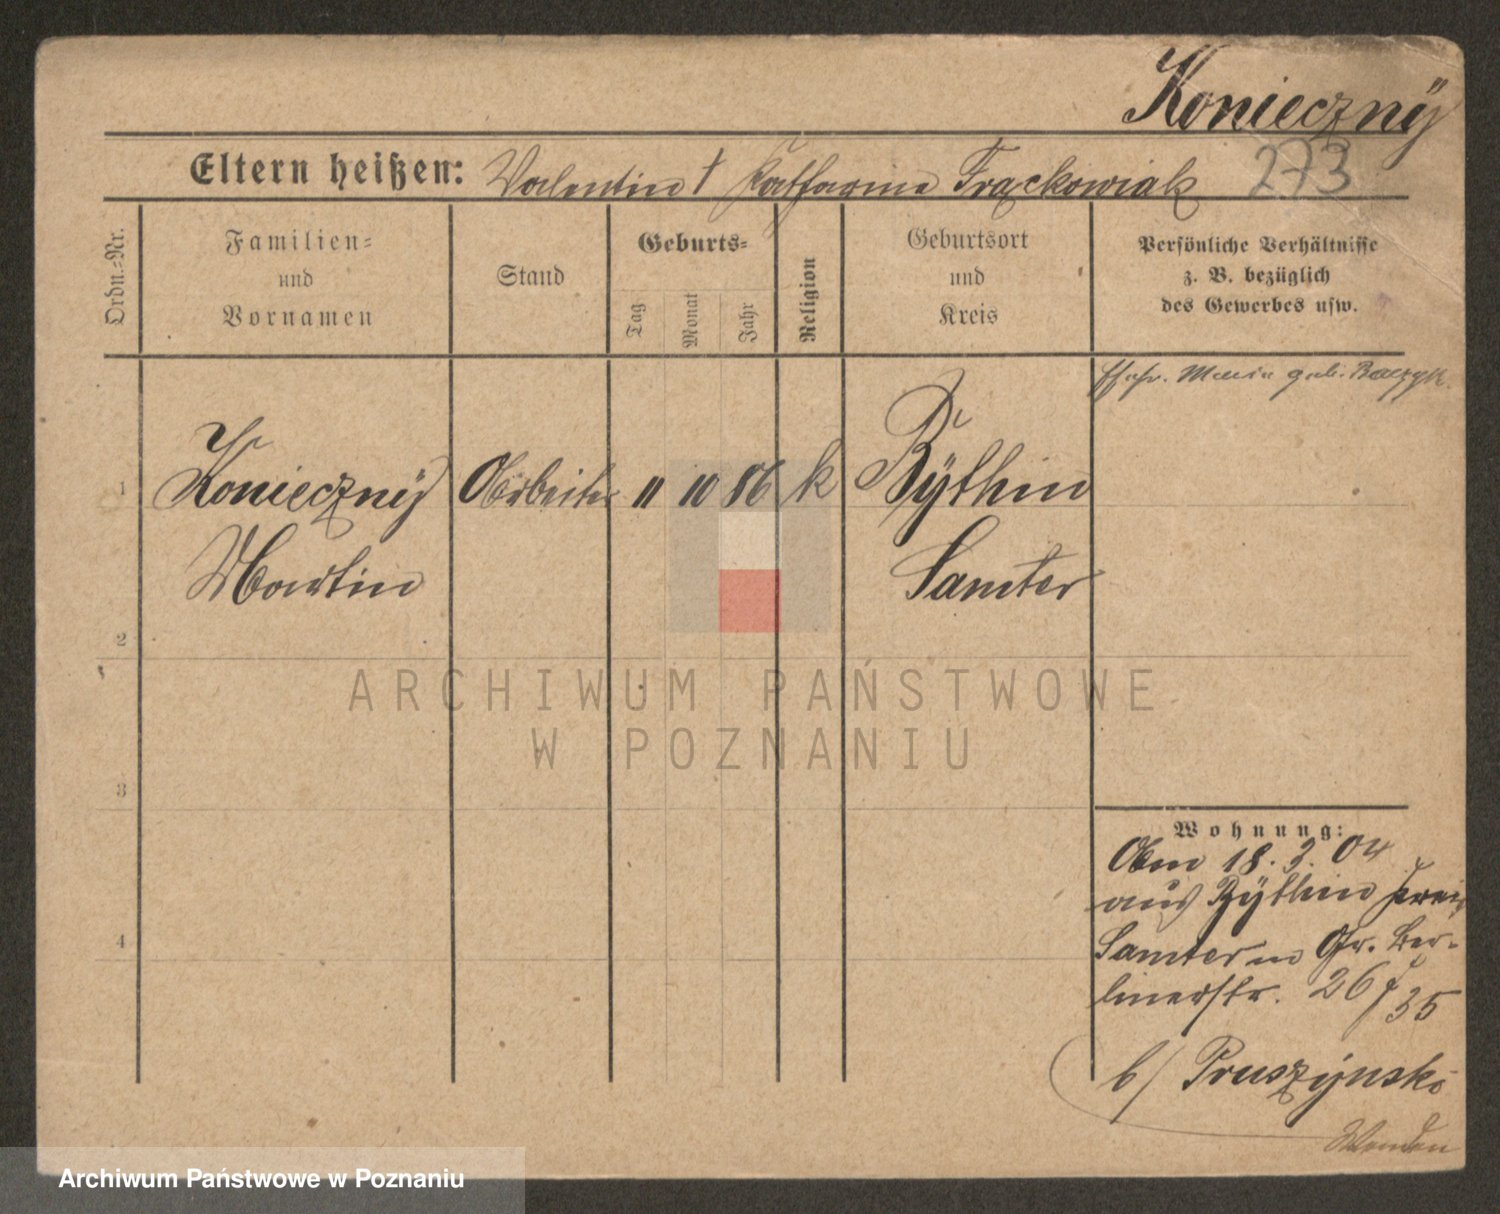 Konieczny
Eltern heißen: Valentin † Katharina Frąckowiak 273
Ordn.-Nr.
Familien- und Vornamen
Stand
Geburts-
Tag
Monat
Jahr
Religion
Geburtsort und Kreis
Persönliche Verhältnisse
z. B. bezüglich
des Gewerbes usw.
Ehefr. Maria geb.
1 Konieczny Arbeiter 11 10 86 k Bythin
Martin Samter
2
3
4
Wohnung:
Am 18. 3. 04
aus Bythin Kreis
Samter n Gr. Ber-
linerstr. 26 / 35
b/ Pruszynski
Wenden
ARCHIWUM PAŃSTWOWE
W POZNANIU
Archiwum Państwowe w Poznaniu